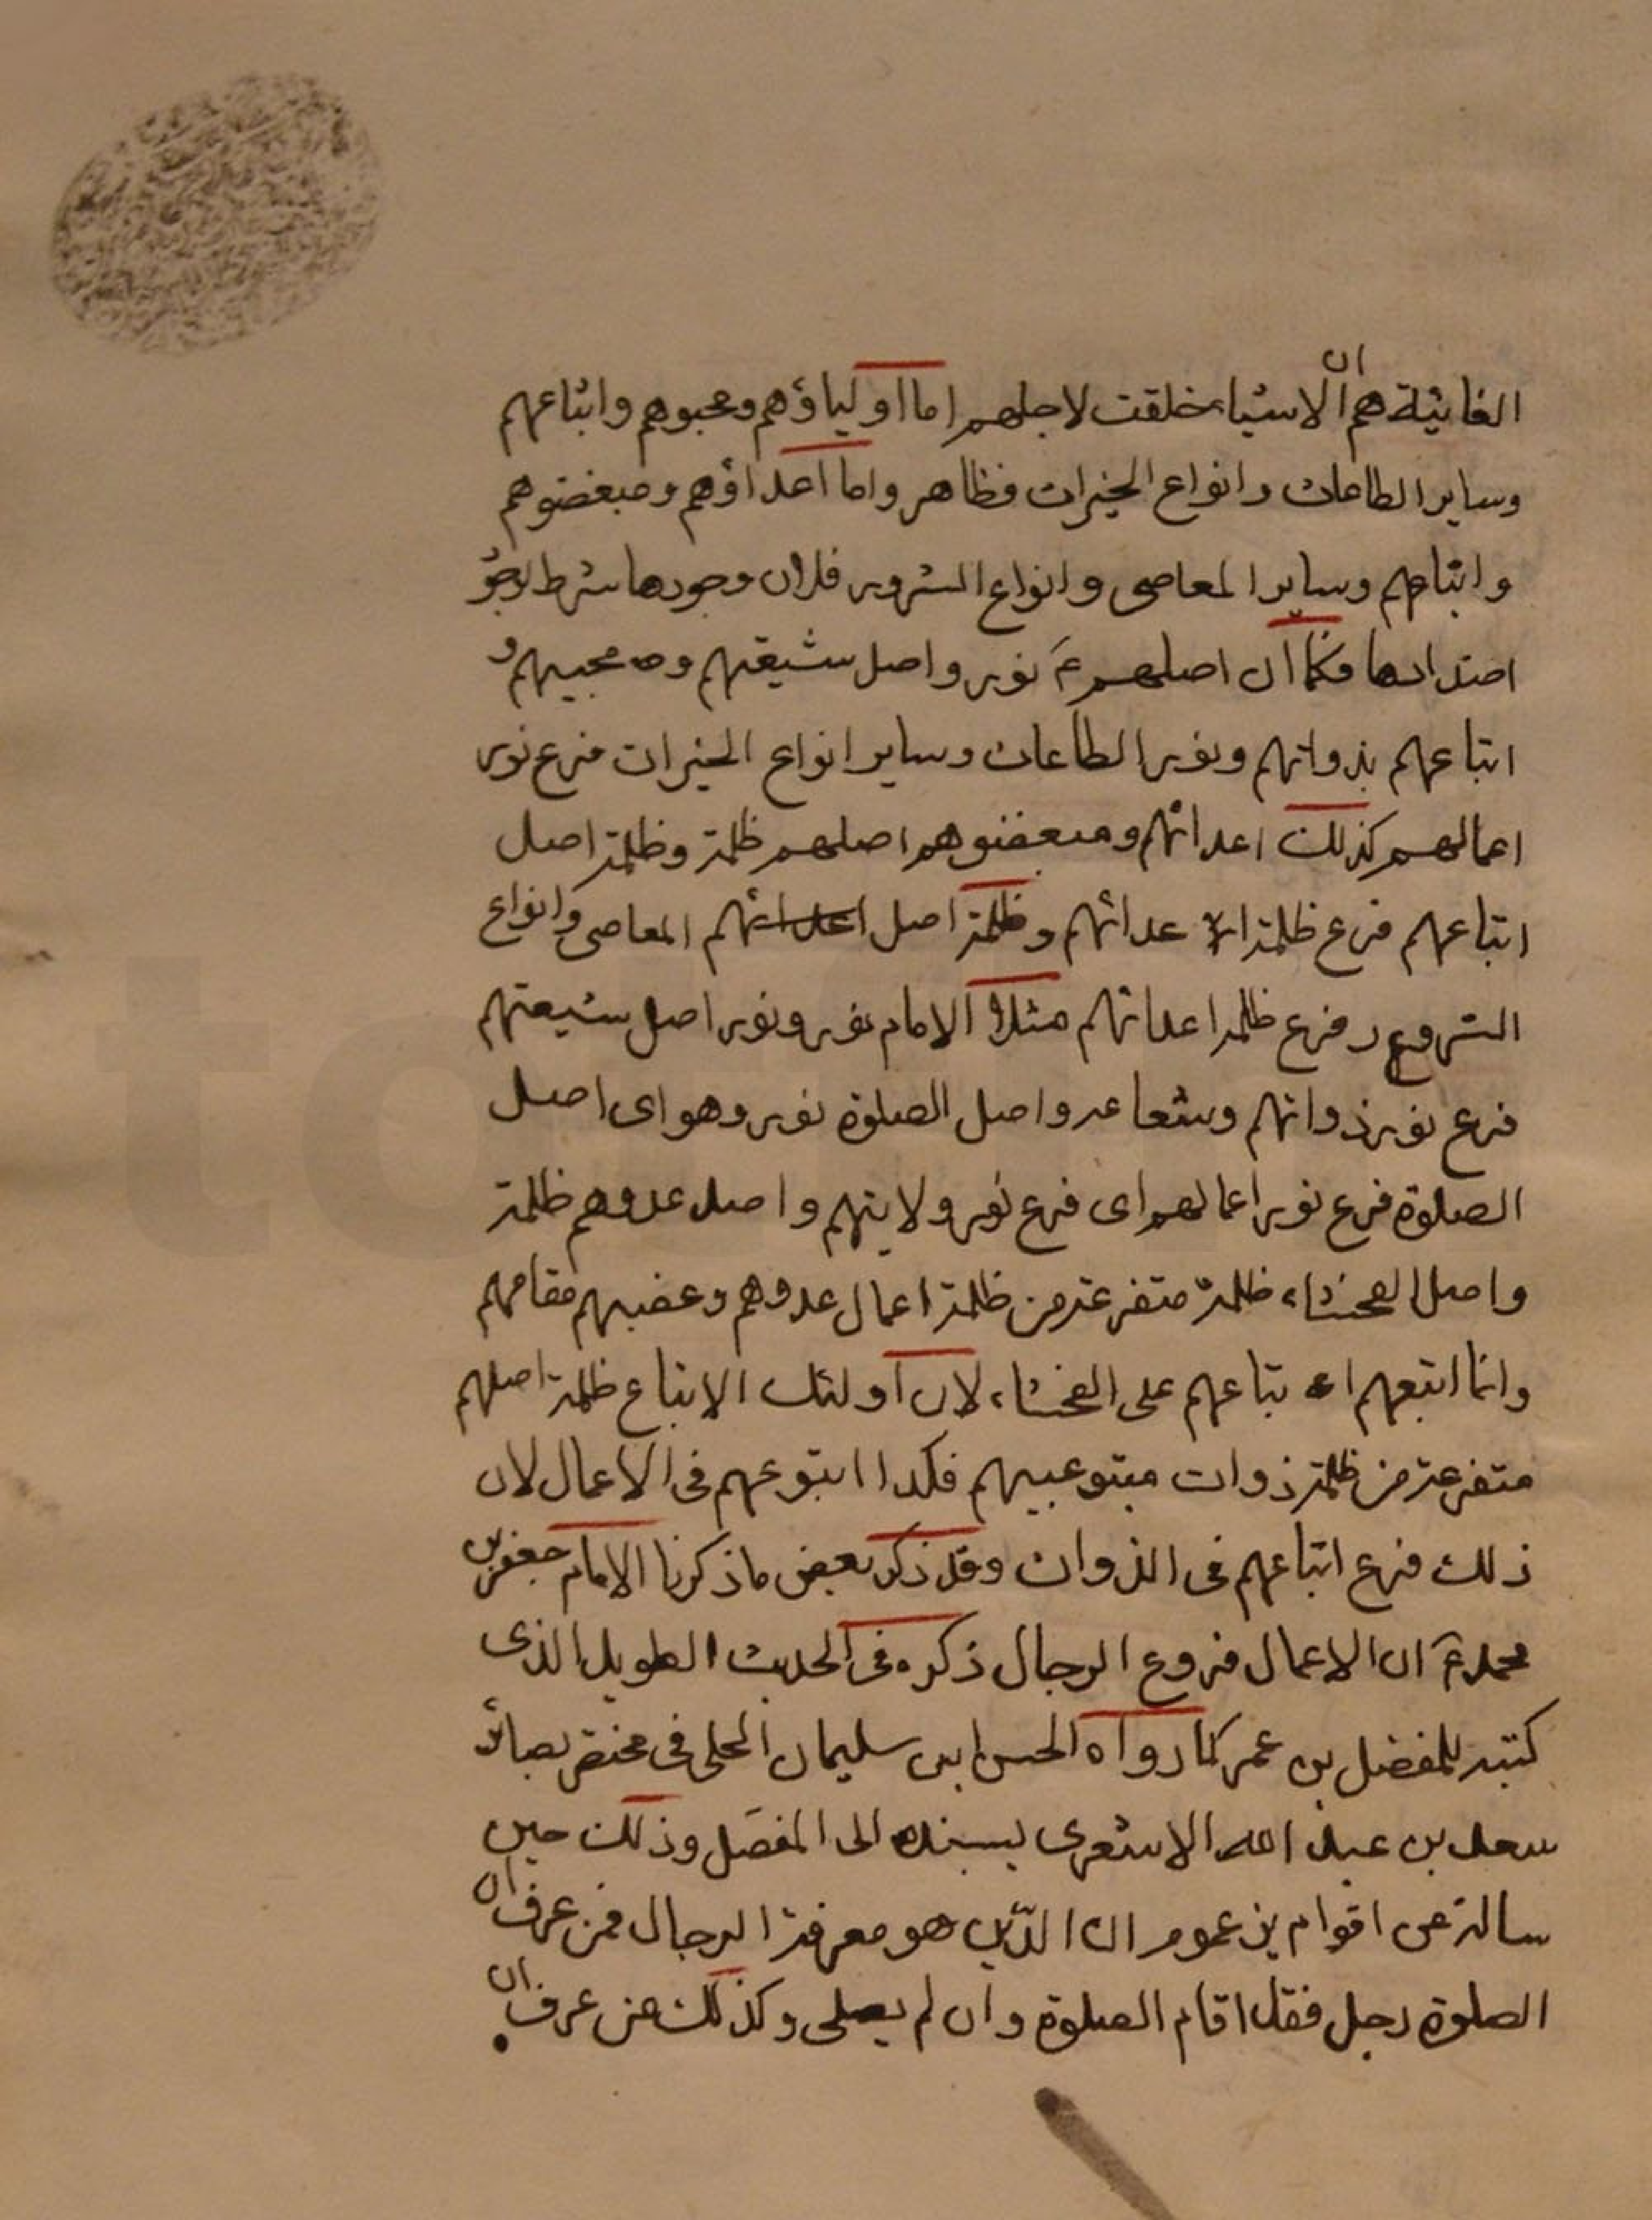 الغائية هم ان الاشياء خلقت لاجلهم اما اولياؤهم ومحبوهم واتباعهم
وساير الطاعات وانواع الخيرات فظاهر واما اعداؤهم ومبغضوهم
واتباعهم وساير المعاصى وانواع الشرور فلان وجودها شرط لوجو
اضدادها فكما ان اصلهم ع نور واصل شيعتهم و محبيهم و
اتباعهم بذواتهم ونور الطاعات وساير انواع الخيرات فرع نور
اعمالهم كذلك اعدائهم ومبغضوهم اصلهم ظلمة وظلمة اصل
اتباعهم فرع ظلمة الاعدائهم وظلمة اصل اعدائهم المعاصى وانواع
الشرور فرع ظلمة اعدائهم مثلا الامام نور ونور اصل شيعتهم
فرع نور ذواتهم وشعاعه واصل الصلوة نور وهو اى اصل
الصلوة فرع نور اعمالهم اى فرع نور ولايتهم واصل عدوهم ظلمة
واصل الفحشاء ظلمة متفرعة من ظلمة اعمال عدوهم وغصبهم مقامهم
وانما اتبعهم اتباعهم على الفحشاء لان اولئك الاتباع ظلمة اصلهم
متفرعة من ظلمة ذوات متبوعيهم فكذا اتبوعهم فى الاعمال لان
ذلك فرع اتباعهم فى الذوات وقد ذكر بعض ما ذكرنا الامام جعفر بن
محمد ع ان الاعمال فروع الرجال ذكره فى الحديث الطويل الذى
كتبه للمفضل بن عمر كما رواه الحسن ابن سليمان الحلى فى مختصر بصائر
سعد بن عبد الله الاشعرى بسنده الى المفضل وذلك حين
سالة عن اقوام يزعموم ان الدّين هو معرفة الرجال فمن عرف ان
الصلوة رجل فقد اقام الصلوة وان لم يصلى وكذلك من عرف ان